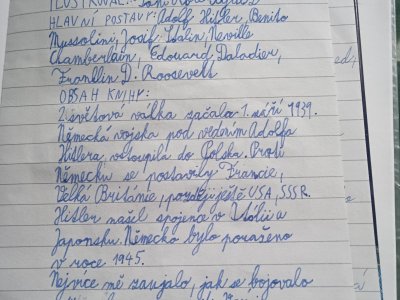 ILUSTROVAL:
HLAVNÍ POSTAVY: Adolf Hitler, Benito
Mussolini, Josif Stalin, Neville
Chamberlain, Edouard Daladier,
Franklin D. Roosevelt
OBSAH KNIHY:
2. světová válka začala 1. září 1939.
Německá vojska pod vedením Adolfa
Hitlera vstoupila do Polska. Proti
Německu se postavily Francie,
Velká Británie, později ještě USA, SSSR.
Hitler našel spojence v Itálii a
Japonsku. Německo bylo poraženo
v roce 1945.
Nejvíce mě zaujalo, jak se bojovalo